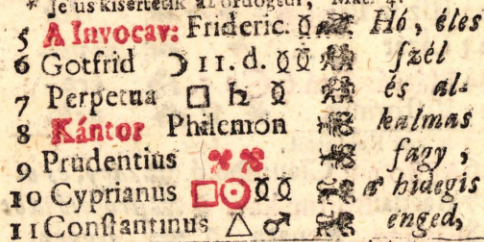 * Jésus kisértetik az ördögtül, Mat. 4.
5 A Invocav: Frideric. ☿ Hó, éles
6 Gotfrid ☽ 11. d. ☿☿ szél
7 Perpetua □ ♄ ☿ és al-
8 Kántor Philemon kalmas
9 Prudentius fagy,
10 Cyprianus □☉☿☿ hidegis
11 Constantinus △ ♂ enged,